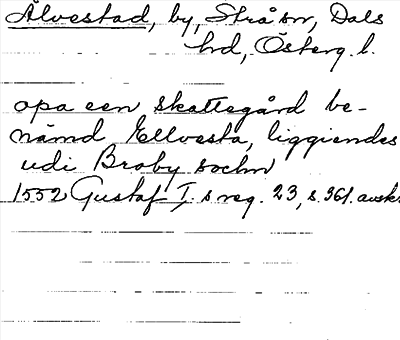 Älvestad, by, Strå sn, Dals
hd, Österg. l.
opa een skattegård be-
nämd Ellvesta, liggiendes
udi Broby sochn
1552 Gustaf I. s reg. 23, s. 361. avskr